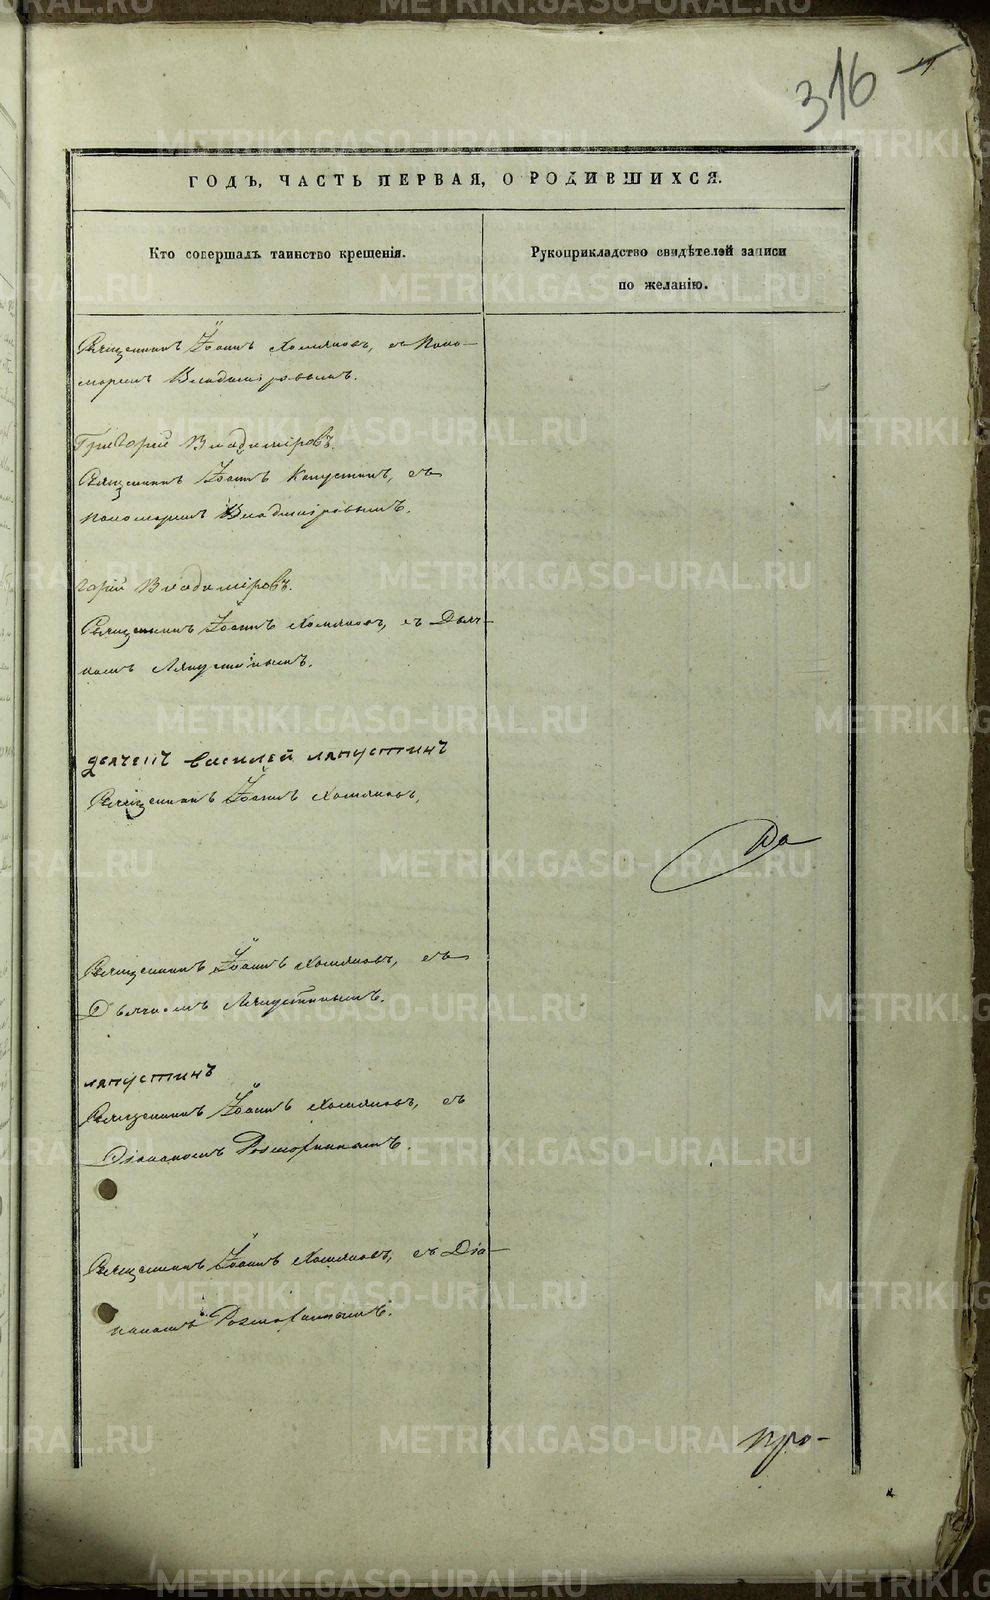 316
ГОДЪ, ЧАСТЬ ПЕРВАЯ, О РОДИВШИХСЯ.
Кто совершалъ таинство крещенія.
Рукоприкладство свидѣтелей записи
по желанію.
Священникъ Іоаннъ Хомяковъ, съ Поно-
маремъ Владиміровымъ.
Григорий Владиміровъ.
Священникъ Іоаннъ Капустинъ, съ
пономаремъ Владиміровымъ.
горій Владиміровъ.
Священникъ Іоаннъ Хомяковъ, съ Дьяч-
комъ Ляпустинымъ.
дьячекъ василей ляпустинъ
Священникъ Іоаннъ Хомяковъ,
Священникъ Іоаннъ Хомяковъ, съ
Дьячкомъ Ляпустинымъ.
ляпустинъ
Священникъ Іоаннъ Хомяковъ, съ
Діакономъ
Священникъ Іоаннъ Хомяковъ, съ Діа-
кономъ
про-
METRIKI.GASO-URAL.RU